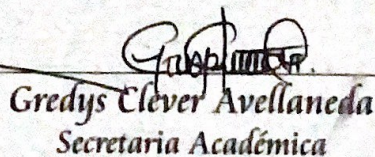 Gredys Clever Avellaneda
Secretaria Académica